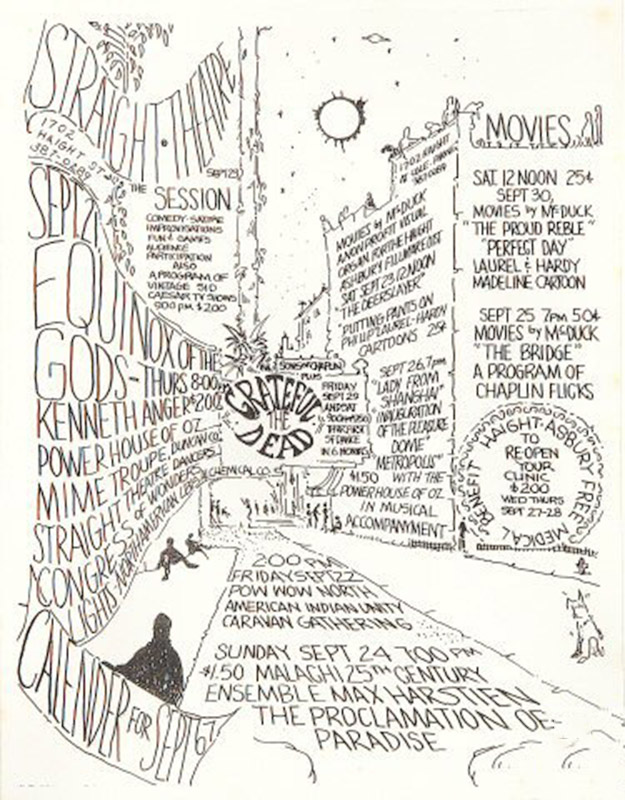 STRAIGHT · THEATRE
1702
HAIGHT ST.
387-0289
SEPT 21
EQUINOX OF THE
GODS - THURS 8:00
KENNETH ANGER $2.00
POWER HOUSE OF OZ
MIME TROUPE, DUNCAN CO.
STRAIGHT THEATRE DANCERS
CONGRESS OF WONDERS
LIGHTS
CHEMICAL CO.
CALENDER FOR SEPT 67
SEPT 23
THE SESSION
COMEDY-SATIRE
IMPROVISATIONS
FUN & GAMES
AUDIENCE
PARTICIPATION
ALSO
A PROGRAM OF
VINTAGE SID
CAESAR TV SHOWS
9:00 PM $2.00
SONS OF CHAPLIN
PLUS
GRATEFUL
THE
DEAD
FRIDAY
SEPT 29
AND SAT
THEIR FIRST
SF DANCE
IN 6 MONTHS
1702 HAIGHT
AT COLE
387-0289
MOVIES by McDUCK
A NON PROFIT VISUAL
ORGAN FOR THE HAIGHT
ASHBURY FILLMORE DIST
SAT SEPT 23, 12 NOON
"THE DEERSLAYER"
"PUTTING PANTS ON
PHILIP" LAUREL-HARDY
CARTOONS 25¢
SEPT 26, 7pm
"LADY FROM
SHANGHAI"
"INAUGURATION
OF THE PLEASURE
DOME"
"METROPOLIS"
$1.50 WITH THE
POWERHOUSE OF OZ
IN MUSICAL
ACCOMPANYMENT
MOVIES
SAT. 12 NOON 25¢
SEPT 30,
MOVIES by McDUCK
"THE PROUD REBLE"
"PERFECT DAY"
LAUREL & HARDY
MADELINE CARTOON
SEPT 25 7PM 50¢
MOVIES by McDUCK
"THE BRIDGE"
A PROGRAM OF
CHAPLIN FLICKS
BENEFIT HAIGHT-ASBURY FREE MEDICAL
TO
RE OPEN
YOUR
CLINIC
$2.00
WED THURS
SEPT 27-28
2:00 PM
FRIDAY SEPT 22
POW WOW NORTH
AMERICAN INDIAN UNITY
CARAVAN GATHERING
SUNDAY SEPT 24 7:00 PM
$1.50 MALACHI 25TH CENTURY
ENSEMBLE MAX HARSTIEN
THE PROCLAMATION OF
PARADISE